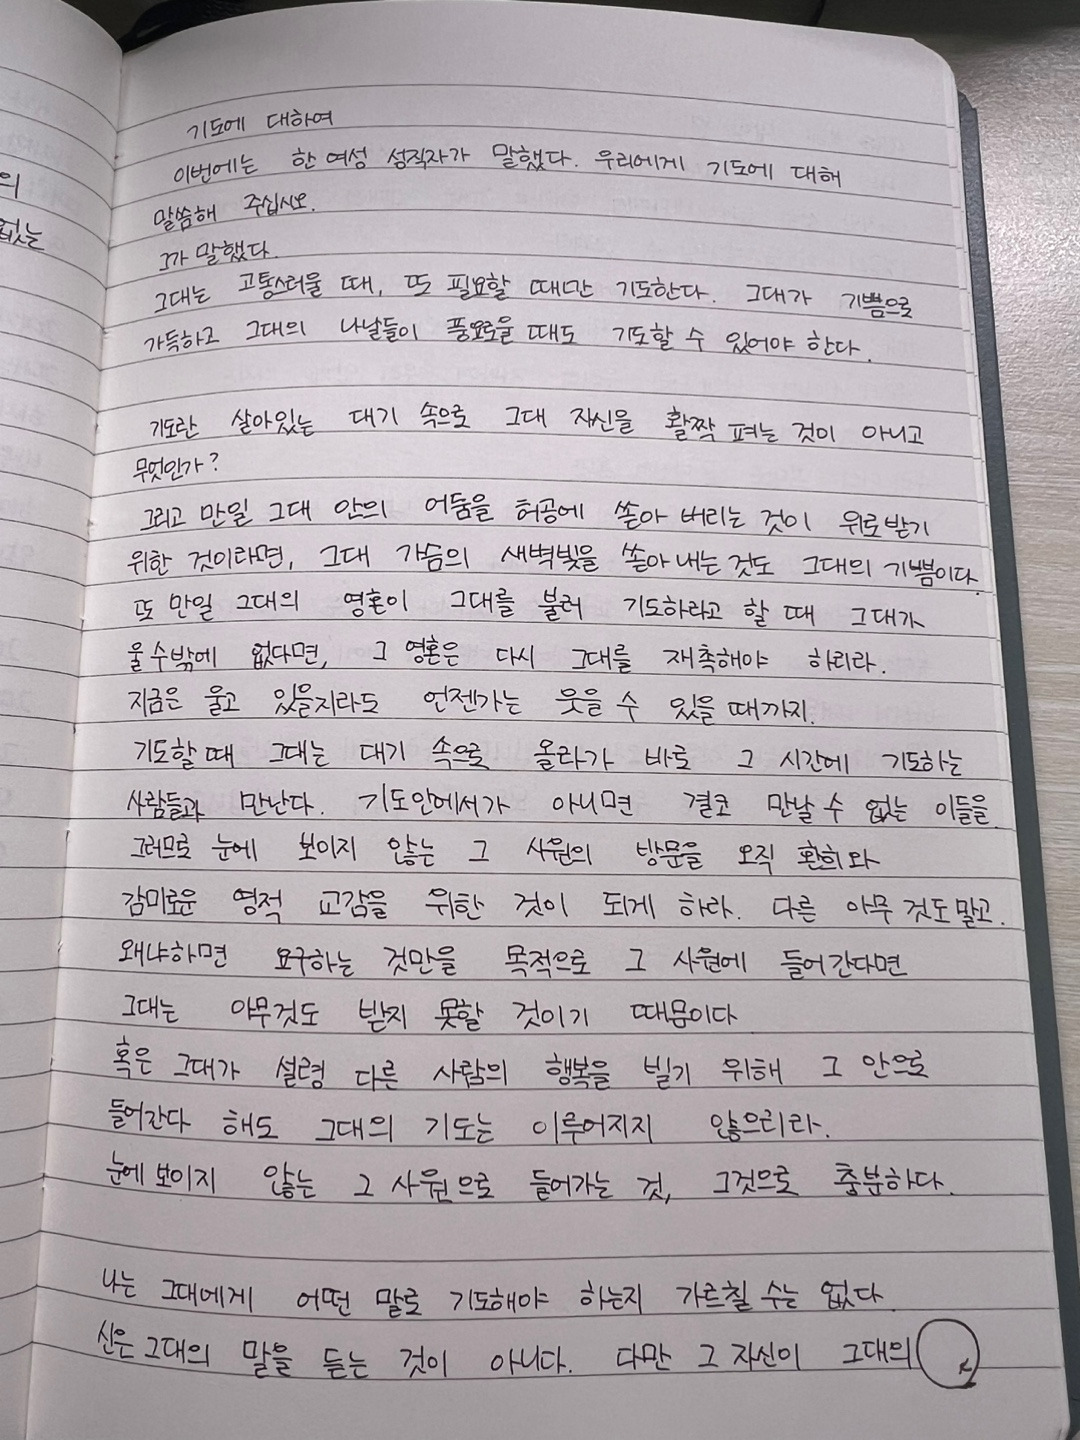 의
없는
기도에 대하여
이번에는 한 여성 성직자가 말했다. 우리에게 기도에 대해
말씀해 주십시오.
그가 말했다.
그대는 고통스러울 때, 또 필요할 때만 기도한다. 그대가 기쁨으로
가득하고 그대의 나날들이 풍요로울 때도 기도할 수 있어야 한다.
기도란 살아있는 대기 속으로 그대 자신을 활짝 펴는 것이 아니고
무엇인가?
그리고 만일 그대 안의 어둠을 허공에 쏟아 버리는 것이 위로받기
위한 것이라면, 그대 가슴의 새벽빛을 쏟아 내는 것도 그대의 기쁨이다.
또 만일 그대의 영혼이 그대를 불러 기도하라고 할 때 그대가
울 수밖에 없다면, 그 영혼은 다시 그대를 재촉해야 하리라.
지금은 울고 있을지라도 언젠가는 웃을 수 있을 때까지.
기도할 때 그대는 대기 속으로 올라가 바로 그 시간에 기도하는
사람들과 만난다. 기도안에서가 아니면 결코 만날 수 없는 이들을.
그러므로 눈에 보이지 않는 그 사원의 방문을 오직 환희와
감미로운 영적 교감을 위한 것이 되게 하라. 다른 아무 것도 말고.
왜냐하면 요구하는 것만을 목적으로 그 사원에 들어간다면
그대는 아무것도 받지 못할 것이기 때문이다
혹은 그대가 설령 다른 사람의 행복을 빌기 위해 그 안으로
들어간다 해도 그대의 기도는 이루어지지 않으리라.
눈에 보이지 않는 그 사원으로 들어가는 것, 그것으로 충분하다.
나는 그대에게 어떤 말로 기도해야 하는지 가르칠 수는 없다.
신은 그대의 말을 듣는 것이 아니다. 다만 그 자신이 그대의